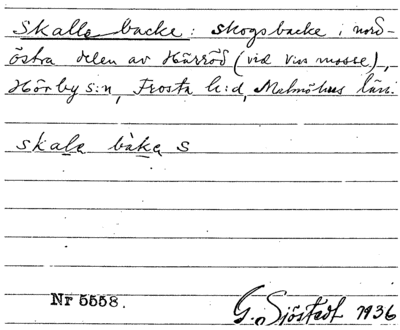 Skalle backe: skogsbacke i nord-
östra delen av Härröd (vid viss mosse),
Hörby s:n, Frosta h:d, Malmöhus län.
skala bàka S
Nr 5558.
G. Sjöstedt 1936